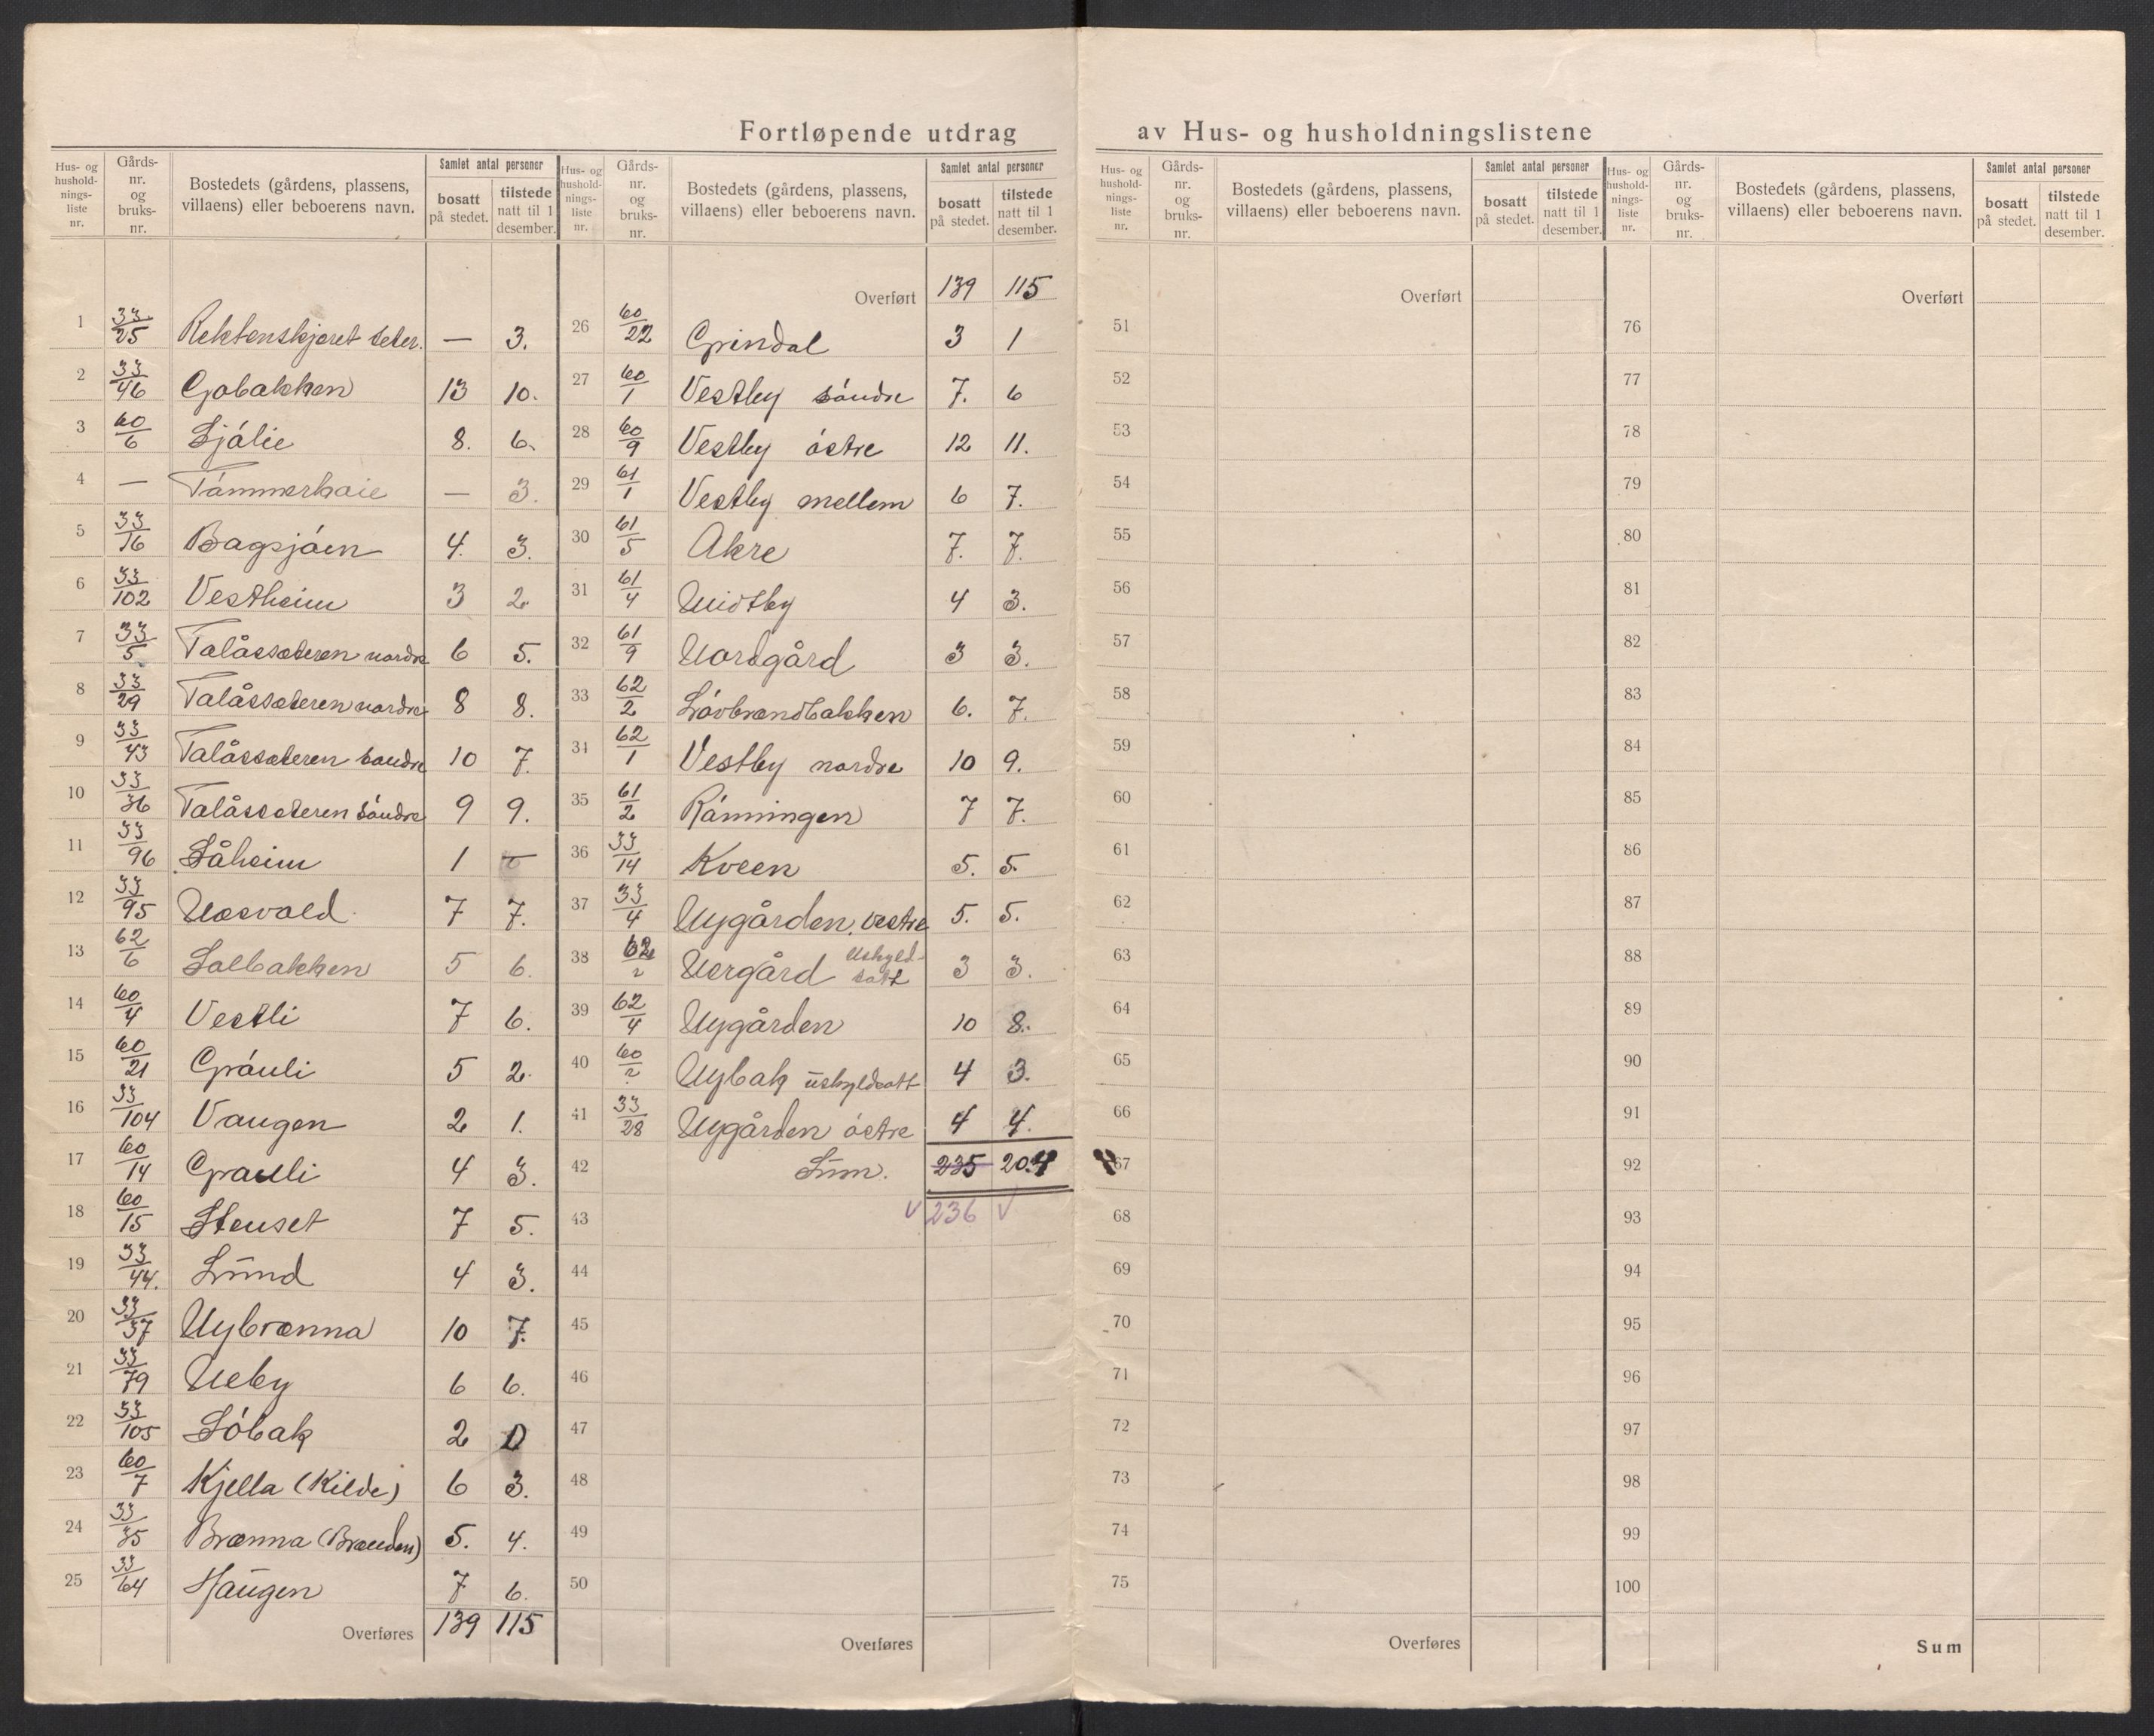 Fortløpende utdrag av Hus- og husholdningslistene
Hus- og hushold-nings-liste nr. | Gårds-nr. og bruks-nr. | Bostedets (gårdens, plassens, villaens) eller beboerens navn. | Samlet antal personer | bosatt på stedet. | tilstede natt til 1 desember.
1 33/25 seter. — 3.
2 33/46 Gjobakken 13 10.
3 60/6 Sjólie 8. 6.
4 — Tómmerkoie — 3.
5 33/16 Bagsjóen 4. 3.
6 33/102 Vestheim 3 2.
7 33/5 Talåssæteren nordre 6 5.
8 33/29 Talåssæteren nordre 8 8.
9 33/43 Talåssæteren sondre 10 7.
10 33/36 Talåssæteren sóndre 9 9.
11 33/96 Såheim 1 —
12 33/95 Næsvold 7 7.
13 62/6 Solbakken 5 6.
14 60/4 Vestli 7 6.
15 60/21 Grónli 5 2.
16 33/104 Vangen 2 1.
17 60/14 Granli 4 3.
18 60/15 Stenset 7 5.
19 33/44. Lund 4 3.
20 33/37 Nybrænna 10 7.
21 33/79 Neby 6 6.
22 33/105 Sóbak 2 0
23 60/7 Kjella (Kilde) 6 3.
24 33/35 Brænna (Brænden) 5. 4.
25 33/64 Haugen 7 6.
Overføres 139 115
Hus- og hushold-nings-liste nr. | Gårds-nr. og bruks-nr. | Bostedets (gårdens, plassens, villaens) eller beboerens navn. | Samlet antal personer | bosatt på stedet. | tilstede natt til 1 desember.
Overført 139 115
26 60/22 Grindal 3 1
27 60/1 Vestby sóndre 7. 6
28 60/9 Vestby óstre 12 11.
29 61/1 Vestby mellem 6 7.
30 61/5 Akre 7. 7.
31 61/4 Midtby 4 3.
32 61/9 Nordgård 3 3.
33 62/2 Lóvbrændbakken 6. 7.
34 62/1 Vestby nordre 10 9.
35 61/2 Rónningen 7 7.
36 33/14 Kveen 5. 5.
37 33/4 Nygården vestre 5. 5.
38 62/2 Nergård Uskyld-satt 3 3.
39 62/4 Nygården 10 8.
40 60/? Nybak uskyldsatt 4 3.
41 33/28 Nygården óstre 4 4.
42 Sum. 235 204
43 √ 236 √
44
45
46
47
48
49
50
Overføres
Hus- og hushold-nings-liste nr. | Gårds-nr. og bruks-nr. | Bostedets (gårdens, plassens, villaens) eller beboerens navn. | Samlet antal personer | bosatt på stedet. | tilstede natt til 1 desember.
Overført
51
52
53
54
55
56
57
58
59
60
61
62
63
64
65
66
67
68
69
70
71
72
73
74
75
Overføres
Hus- og hushold-nings-liste nr. | Gårds-nr. og bruks-nr. | Bostedets (gårdens, plassens, villaens) eller beboerens navn. | Samlet antal personer | bosatt på stedet. | tilstede natt til 1 desember.
Overført
76
77
78
79
80
81
82
83
84
85
86
87
88
89
90
91
92
93
94
95
96
97
98
99
100
Sum